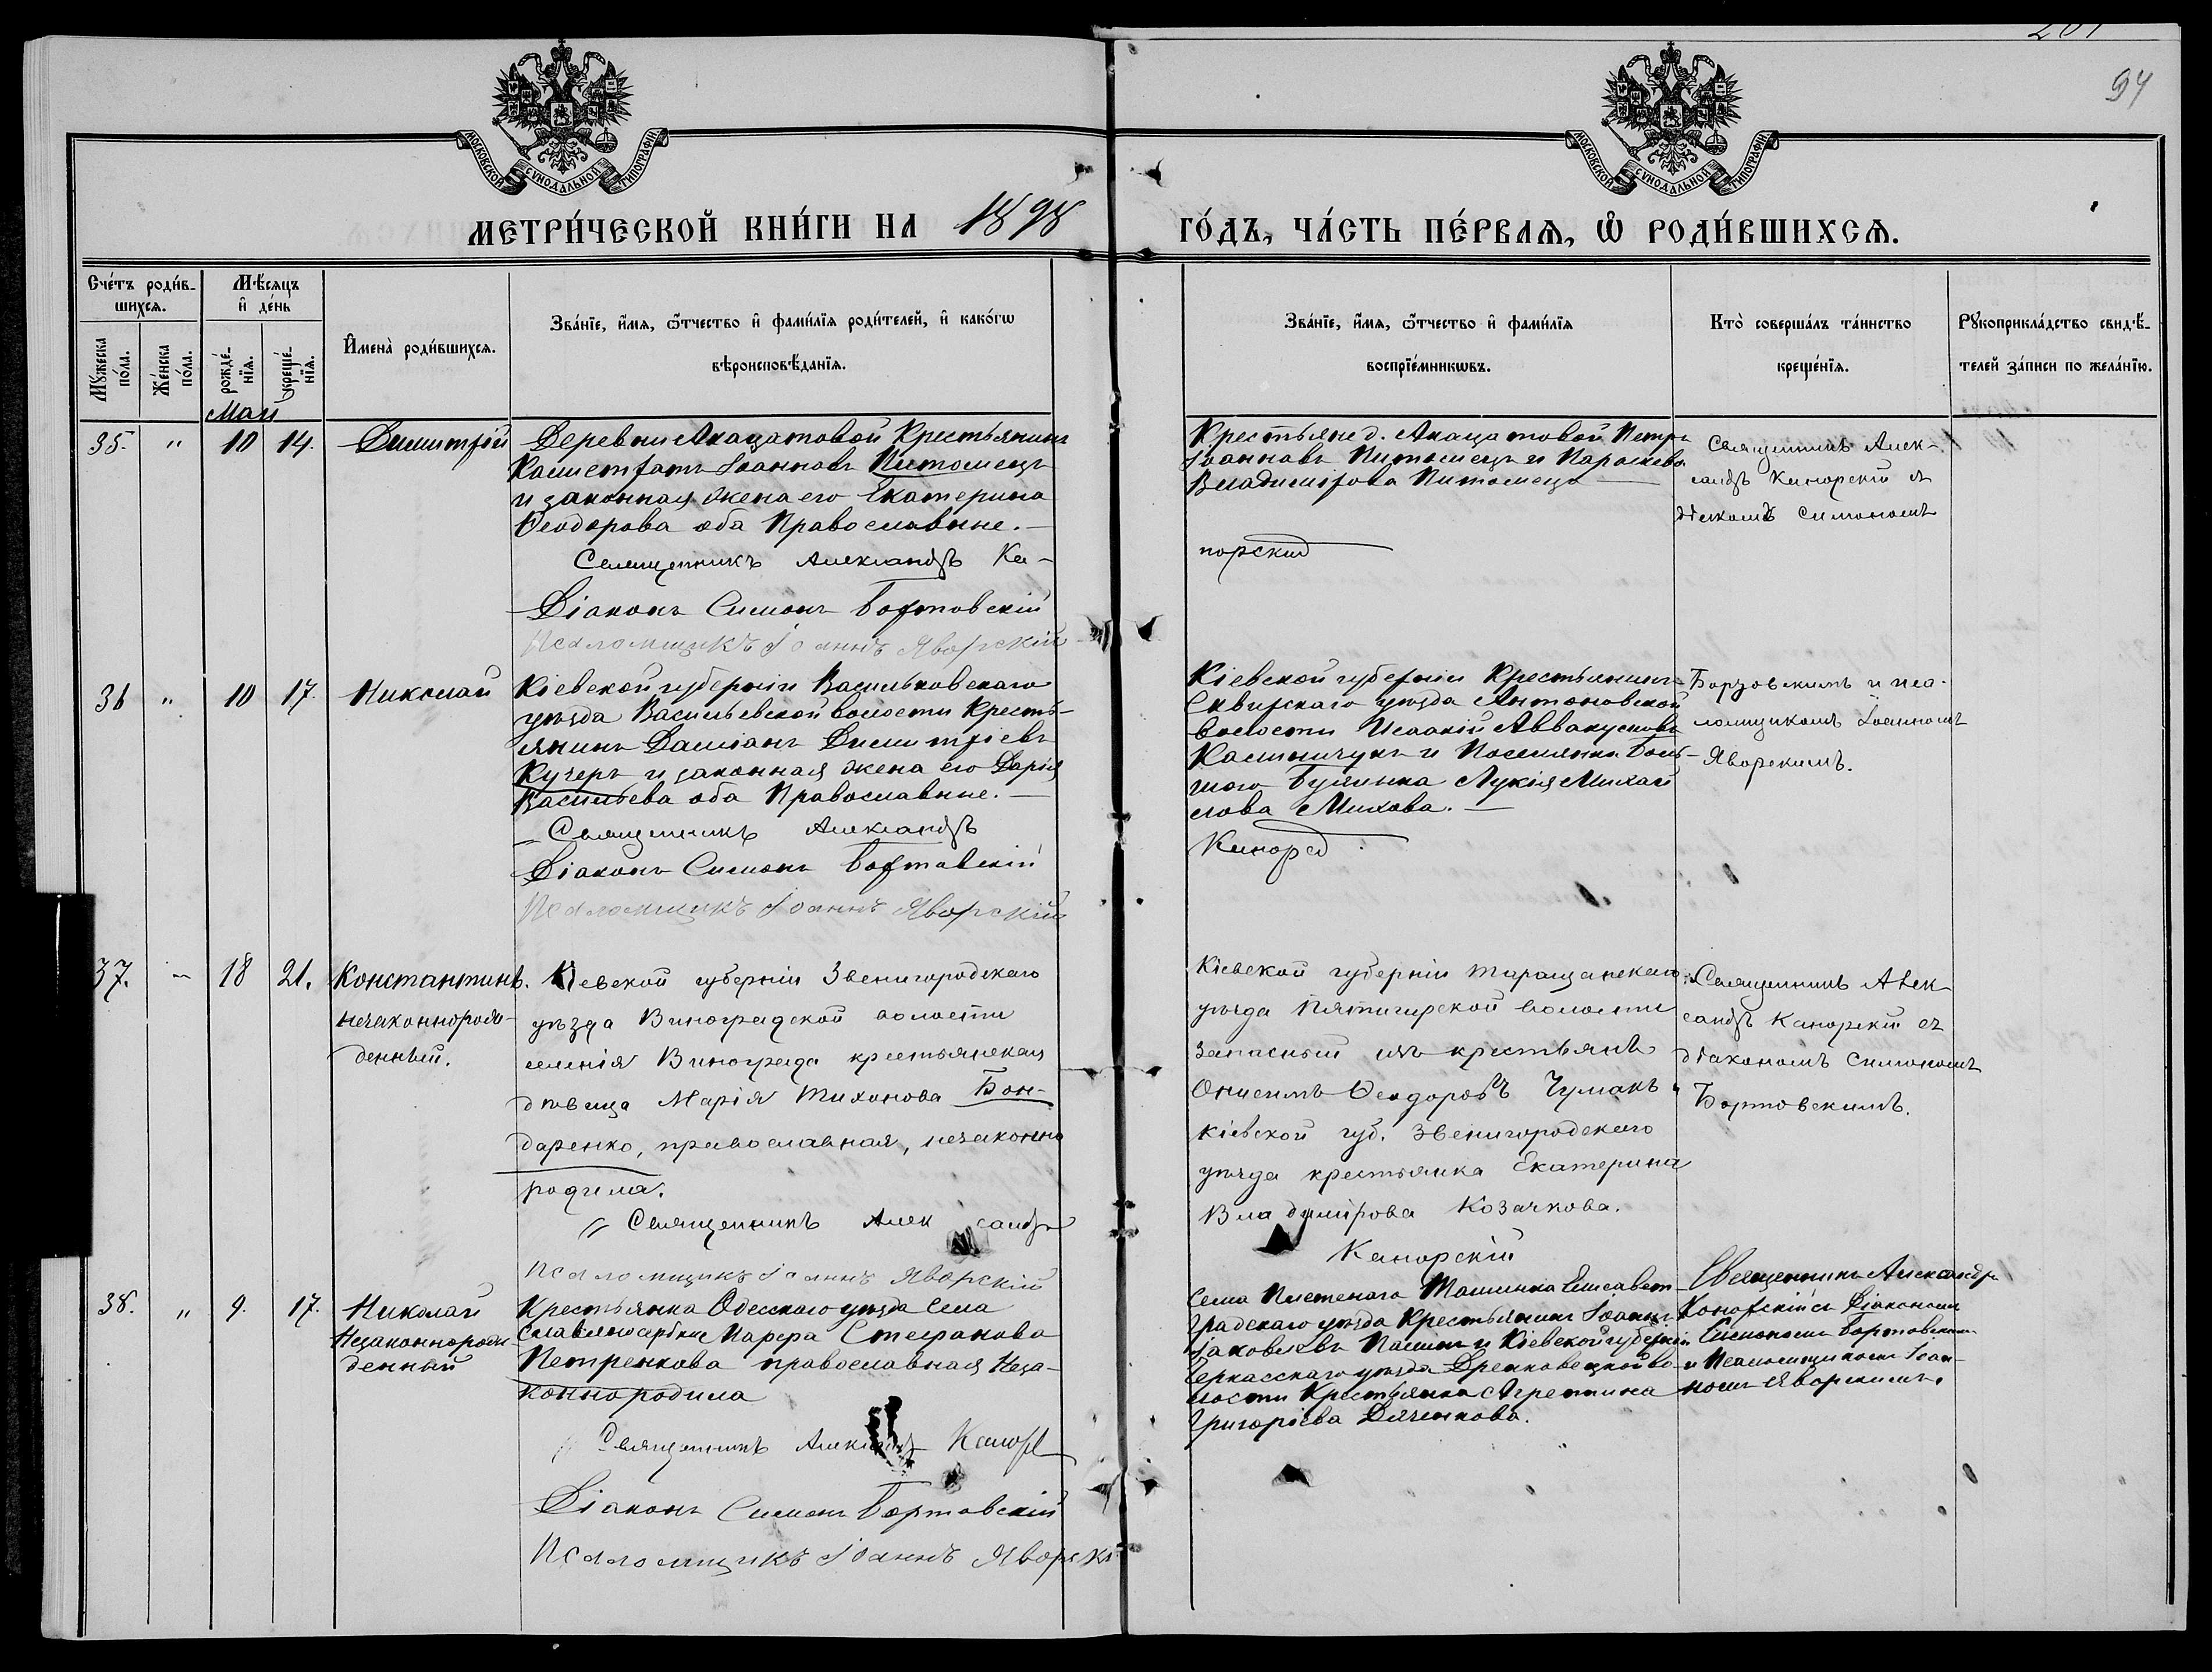 94
МОСКОВСКОЙ СѴНОДАЛЬНОЙ ТИПОГРАФІИ.
МОСКОВСКОЙ СѴНОДАЛЬНОЙ ТИПОГРАФІИ.
МЕТРИ́ЧЕСКОЙ КНИ́ГИ НА 1898 ГО́ДЪ, ЧА́СТЬ ПЕ́РВАѦ, Ѽ РОДИ́ВШИХСѦ.
Сче́тъ роди́в-
шихсѧ.
Мѣ́сѧцъ
и҆ де́нь
Мꙋ́жеска по́ла.
Же́нска по́ла.
рожде́-
нїѧ.
креще́-
нїѧ.
И҆мена̀ роди́вшихсѧ.
Зва́нїе, и҆́мѧ, ѻ҆́тчество и҆ фами́лїѧ роди́телей, и҆ како́гѡ
вѣроисповѣ́данїѧ.
Зва́нїе, и҆́мѧ, ѻ҆́тчество и҆ фами́лїѧ
воспрїе́мникѡвъ.
Кто̀ соверша́лъ та́инство
креще́нїѧ.
Рꙋкоприкла́дство свидѣ́-
телей за́писи по жела́нїю.
Май
35. " 10 14. Димитрій
Деревни Акацатовой Крестьянинъ
Каллистратъ Іоанновъ Питомецъ
и законная жена его Екатерина
Ѳеодорова оба Православные.
Священникъ Александръ Ка-
норскій
Діаконъ Симонъ Бортовскій
Псаломщикъ Іоаннъ Яворскій
Крестьяне д. Акацатовой Петръ
Іоанновъ Питомецъ и Параскева
Владимірова Питомецъ
Священникъ Алек-
сандръ Канорскій съ
діакономъ Симономъ
36 " 10 17. Николай
Кіевской губерніи Васильковскаго
уѣзда Васильевской волости Кресть-
янинъ Даміанъ Димитріевъ
Кучеръ и законная жена его Дарія
Васильева оба Православные.
Священникъ Александръ
Канорс
Діаконъ Симонъ Бортовскій
Псаломщикъ Іоаннъ Яворскій
Кіевской губерніи Крестьянинъ
Сквирскаго уѣзда Антоновской
волости Исаакій Аввакумовъ
Калиничукъ и Поселянка Боль-
шого Буялыка Лукія Михай
лова Милова.
Бортовскимъ и пса-
ломщикомъ Іоанномъ
Яворскимъ.
37. " 18 21. Константинъ.
незаконнорож-
денный.
Кіевской губерніи Звенигородскаго
уѣзда Виноградской волости
селенія Винограда крестьянская
дѣвица Марія Тихонова Бон-
даренко, православная, незаконно
родила.
Священникъ Александръ
Канорскій
Псаломщикъ Іоаннъ Яворскій
Кіевской губерніи Таращанскаго
уѣзда Пятигорской волости
запасный изъ крестьянъ
Онисимъ Ѳеодоровъ Чумакъ и
Кіевской губ. Звенигородскаго
уѣзда крестьянка Екатерина
Владимірова Козачкова.
Священникъ Алек-
сандръ Канорскій съ
діакономъ Симономъ
Бортовскимъ.
38. " 9. 17. Николай
Незаконнорож-
денный
Крестьянка Одесскаго уѣзда Села
Славяносербки Марфа Стефанова
Петренкова православная Неза-
коннородила
Священникъ Александръ Канорс
Діаконъ Симонъ Бортовскій
Псаломщикъ Іоаннъ Яворскі
Села Плетенаго Ташлыка Елисавет-
градскаго уѣзда Крестьянинъ Іоаннъ
Іаковлевъ и Кіевской губерніи
Черкасскаго уѣзда во-
лости Крестьянка Агриппина
Григоріева Дяченкова.
Священникъ Александръ
Конорскій съ Діакономъ
Симономъ Бортовскимъ
и Псаломщикомъ Іоан-
номъ Яворскимъ.